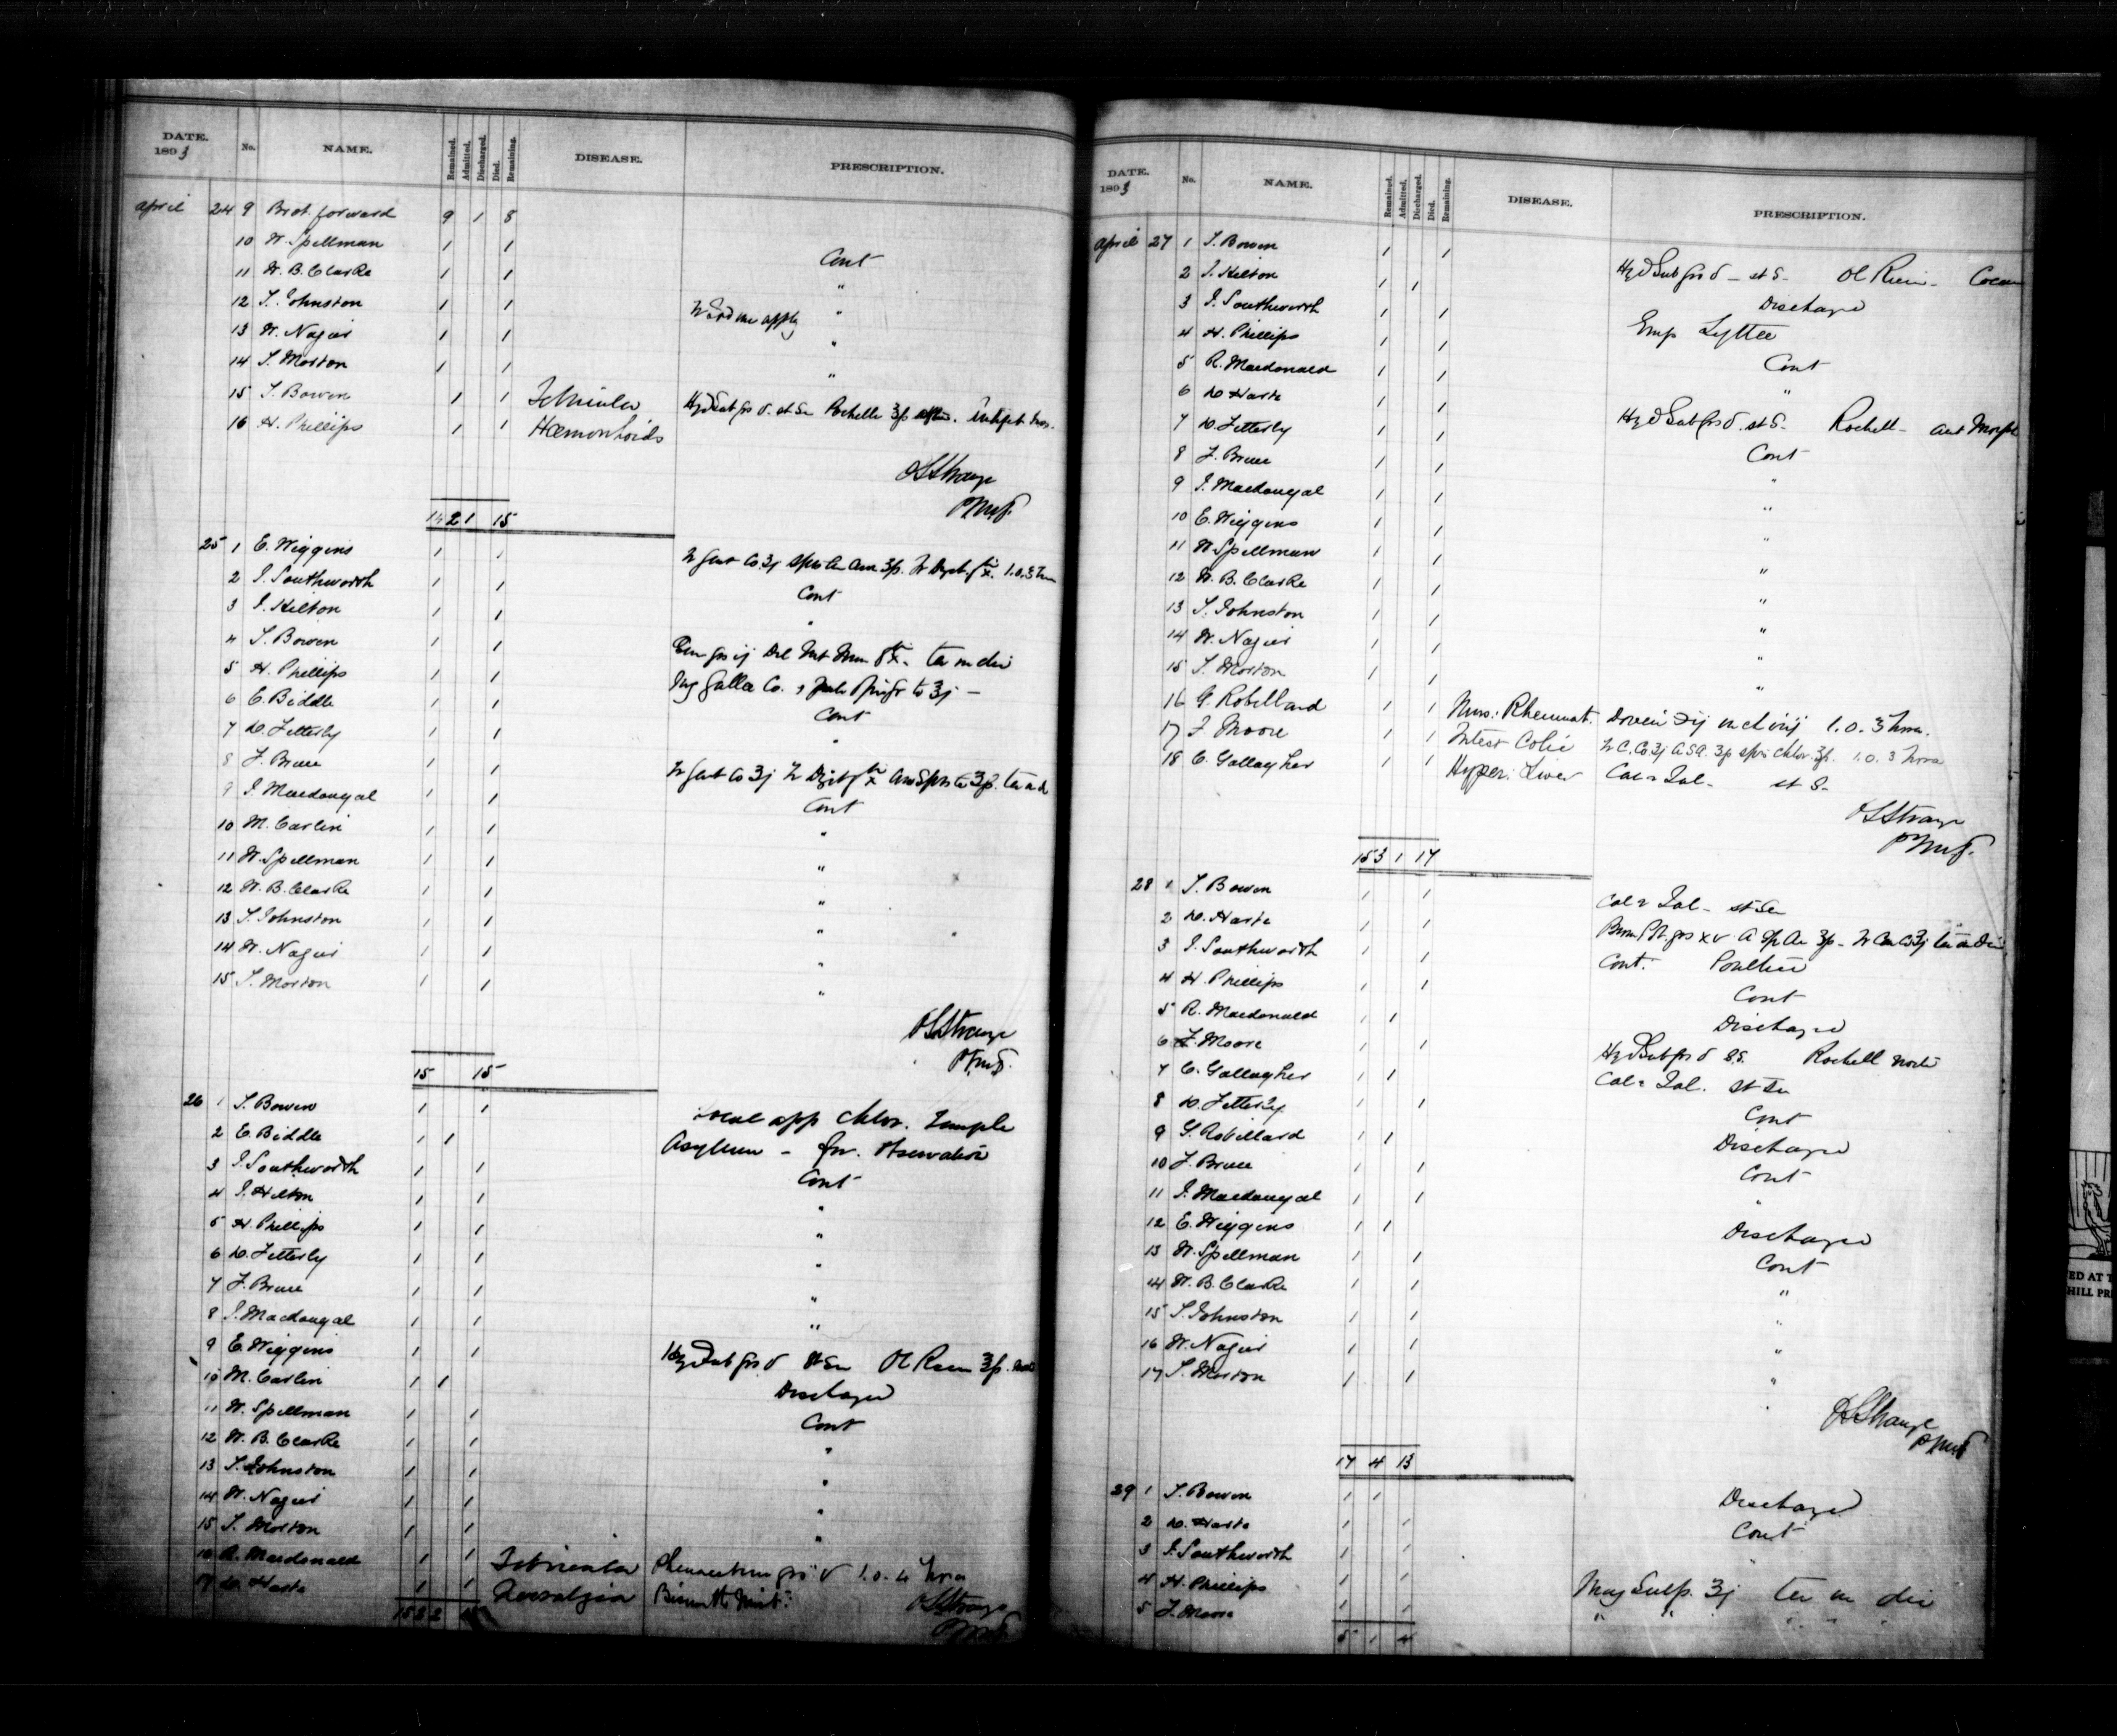 DATE. 1893 No. NAME. Remained. Admitted. Discharged. Died. Remaining. DISEASE. PRESCRIPTION.
April 24 9 Brot. forward 9 1 8
10 W. Spellman 1 1 Cont
11 W. B. Clarke 1 1 "
12 T. Johnston 1 1 "
13 W. Nagier 1 1 "
14 T. Morton 1 1 "
15 T. Bowen 1 1 Febricula Hyd Sub grs v. st Su Rochelle
16 H. Phillips 1 1 Hæmorrhoids
OSStrange
14 2 1 15
25 1 E. Wiggins 1 1
2 J. Southworth 1 1 Cont
3 J. Hilton 1 1 "
4 T. Bowen 1 1 ter in die
5 H. Phillips 1 1 Ung Gallæ Co.
6 E. Biddle 1 1 Cont
7 D. Fetterly 1 1 "
8 F. Bruce 1 1
9 J. Macdougal 1 1 Cont
10 M. Carlin 1 1 "
11 W. Spellman 1 1 "
12 W. B. Clarke 1 1 "
13 T. Johnston 1 1 "
14 W. Nagier 1 1 "
15 T. Morton 1 1 "
OSStrange
15 15
26 1 T. Bowen 1 1 Local app Chlor. Temple
2 E. Biddle 1 1 Asylum – for. Observation
3 J. Southworth 1 1 Cont
4 J. Hilton 1 1 "
5 H. Phillips 1 1 "
6 D. Fetterly 1 1 "
7 F. Bruce 1 1 "
8 J. Macdougal 1 1 "
9 E. Wiggins 1 1 Hyd Sub grs v St Su Ol Ricin
10 M. Carlin 1 1 Discharged
11 W. Spellman 1 1 Cont
12 W. B. Clarke 1 1 "
13 T. Johnston 1 1 "
14 W. Nagier 1 1 "
15 T. Morton 1 1 "
16 R. Macdonald 1 1 Febricula Phenacetin grs v 1.0. 4 hrs
17 D. Harte 1 1 Neuralgia Bismuth Mist:
OSStrange
15 2 2
DATE. 1893 No. NAME. Remained. Admitted. Discharged. Died. Remaining. DISEASE. PRESCRIPTION.
April 27 1 T. Bowen 1 1 Hyd Sub grs v – st S– Ol Ricin –
2 J. Hilton 1 1 Discharged
3 J. Southworth 1 1 Emp Lyttæ
4 H. Phillips 1 1 Cont
5 R. Macdonald 1 1 "
6 D. Harte 1 1 Hyd Sub grs v. st S– Rochell –
7 D. Fetterly 1 1 Cont
8 F. Bruce 1 1 "
9 J. Macdougal 1 1 "
10 E. Wiggins 1 1 "
11 W. Spellman 1 1 "
12 W. B. Clarke 1 1 "
13 T. Johnston 1 1 "
14 W. Nagier 1 1 "
15 T. Morton 1 1 "
16 G. Robilland 1 1 Mus: Rheumat. 1.0. 3 hrs.
17 F. Moore 1 1 Intest Colic 1.0. 3 hrs
18 C. Gallagher 1 1 Hyper: Liver Cal & Jal – st S–
OSStrange
15 3 1 17
28 1 T. Bowen 1 1 Cal & Jal – st Su
2 D. Harte 1 1
3 J. Southworth 1 1 Cont. Poultice
4 H. Phillips 1 1 Cont
5 R. Macdonald 1 1 Discharged
6 F. Moore 1 1 Hyd Sub grs v S.S. Rochell
7 C. Gallagher 1 1 Cal & Jal. st Su
8 D. Fetterly 1 1 Cont
9 G. Robillard 1 1 Discharged
10 F. Bruce 1 1 Cont
11 J. Macdougal 1 1 "
12 E. Wiggins 1 1 Discharged
13 W. Spellman 1 1 Cont
14 W. B. Clarke 1 1 "
15 T. Johnston 1 1 "
16 W. Nagier 1 1 "
17 T. Morton 1 1 "
OSStrange
17 4 13
29 1 T. Bowen 1 1 Discharged
2 D. Harte 1 1 Cont
3 J. Southworth 1 1 "
4 H. Phillips 1 1 Mag Sulp. ʒj ter in die
5 F. Moore 1 1 " " " " "
5 1 4